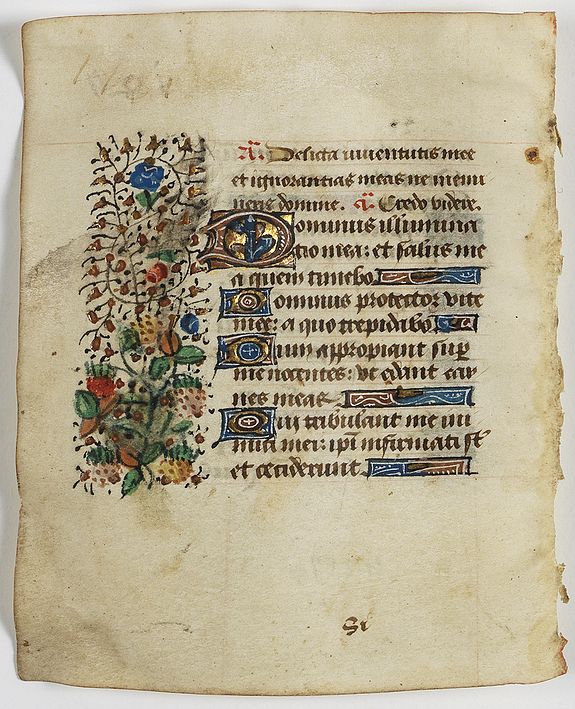 A. Delicta iuuentutis mee
et ignorantias meas ne memi
neris domine. A. Credo videre.
Dominus illumina
tio mea: et salus me
a quem timebo.
Dominus protector vite
mee: a quo trepidabo.
Dum appropiant sup
me nocentes: vt edant car
nes meas.
Qui tribulant me ini
mici mei: ipi infirmati st
et ceciderunt.
Si